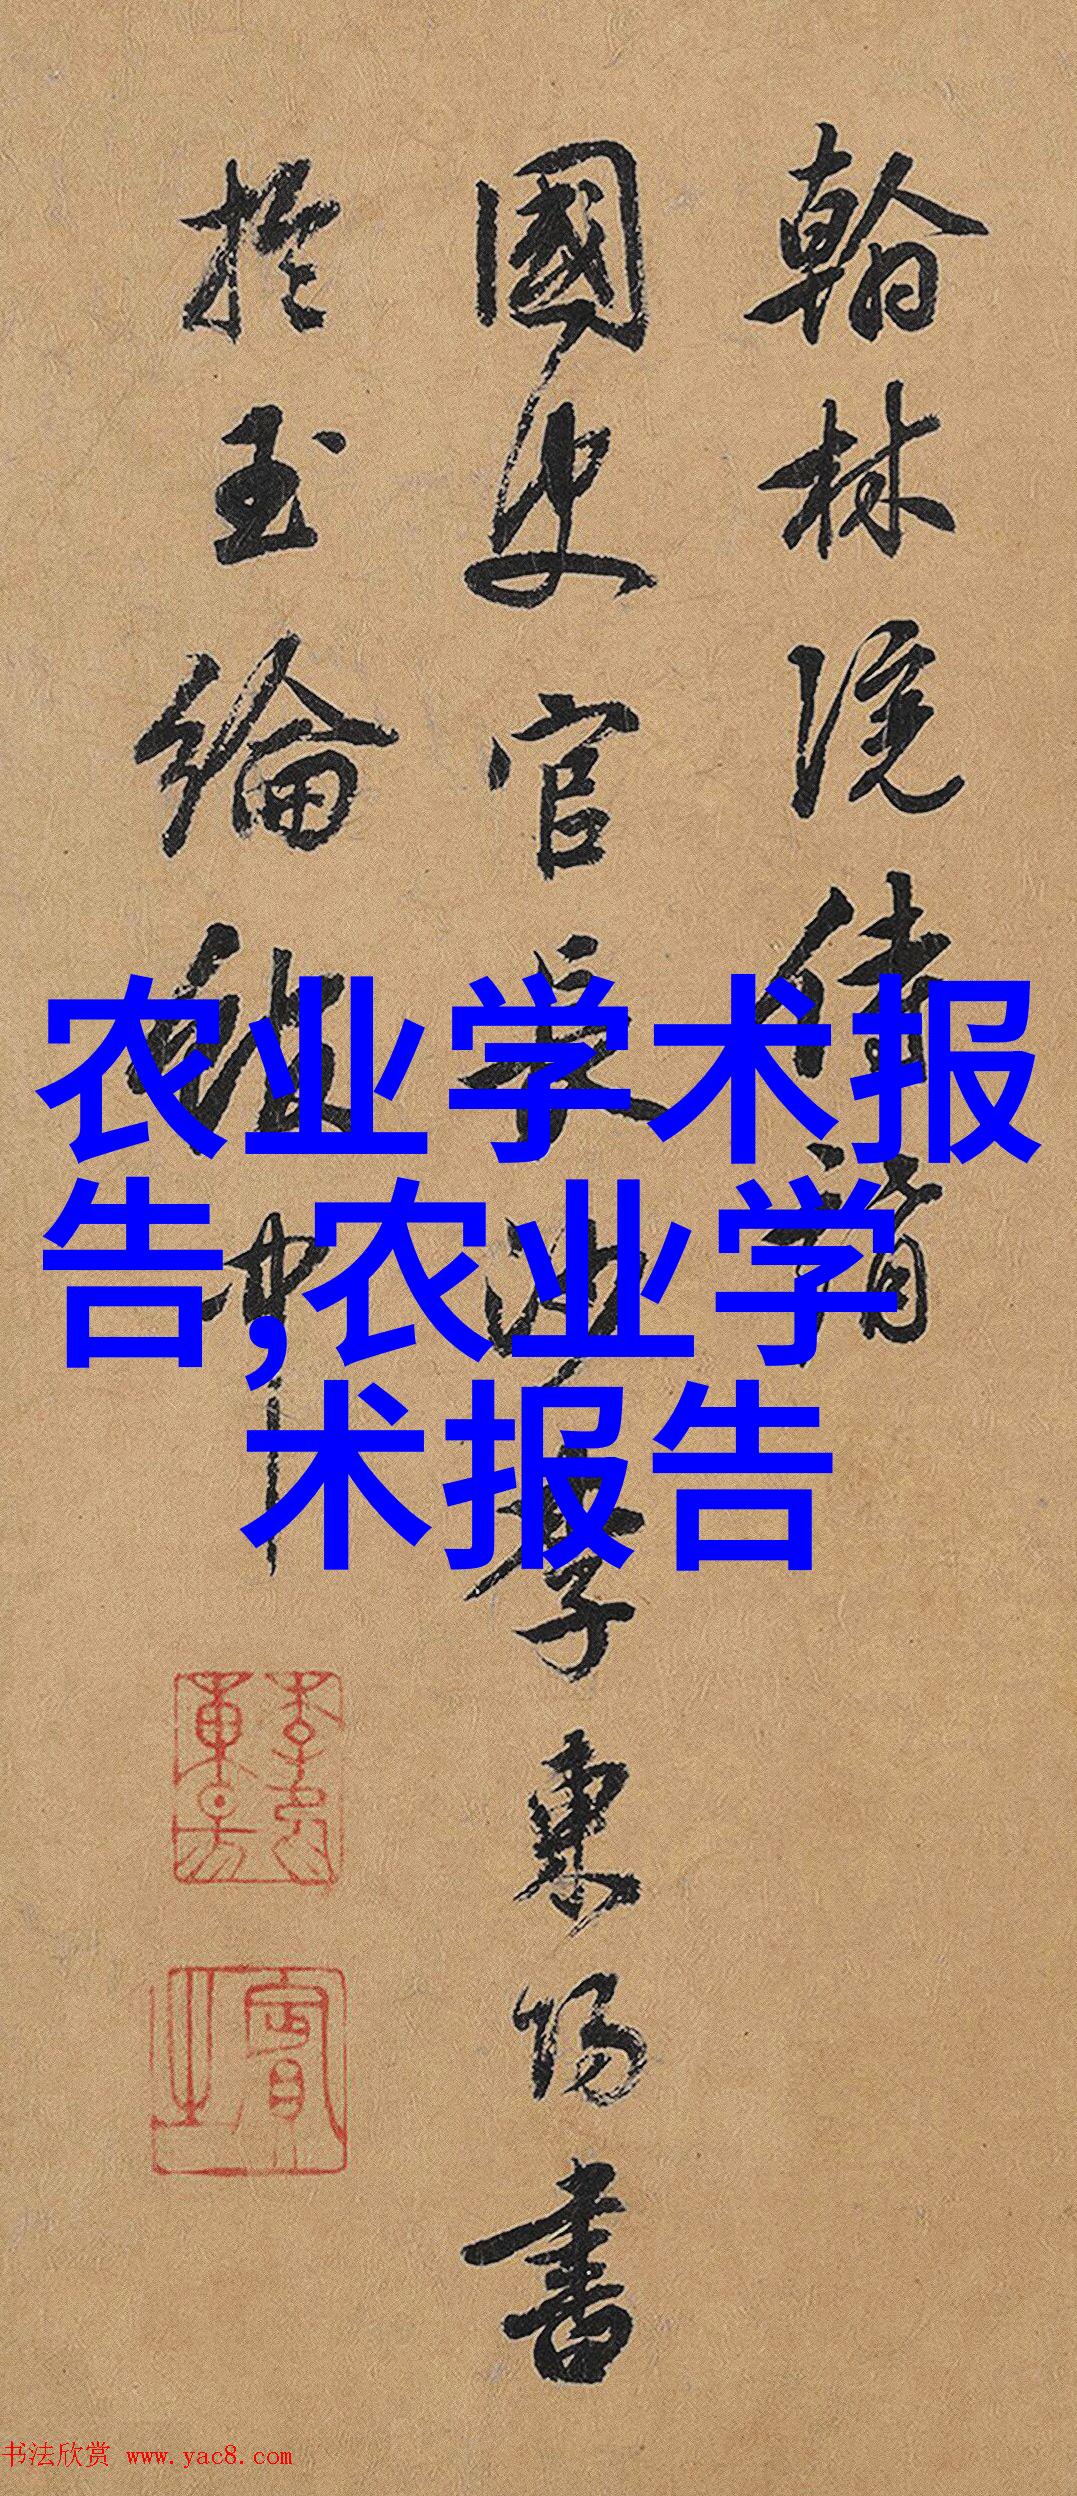 翰林院侍講
國史官長沙李東陽書
於玉綸中
农业学术报
告,农业学
术报告
书法欣赏 www.yac8.com